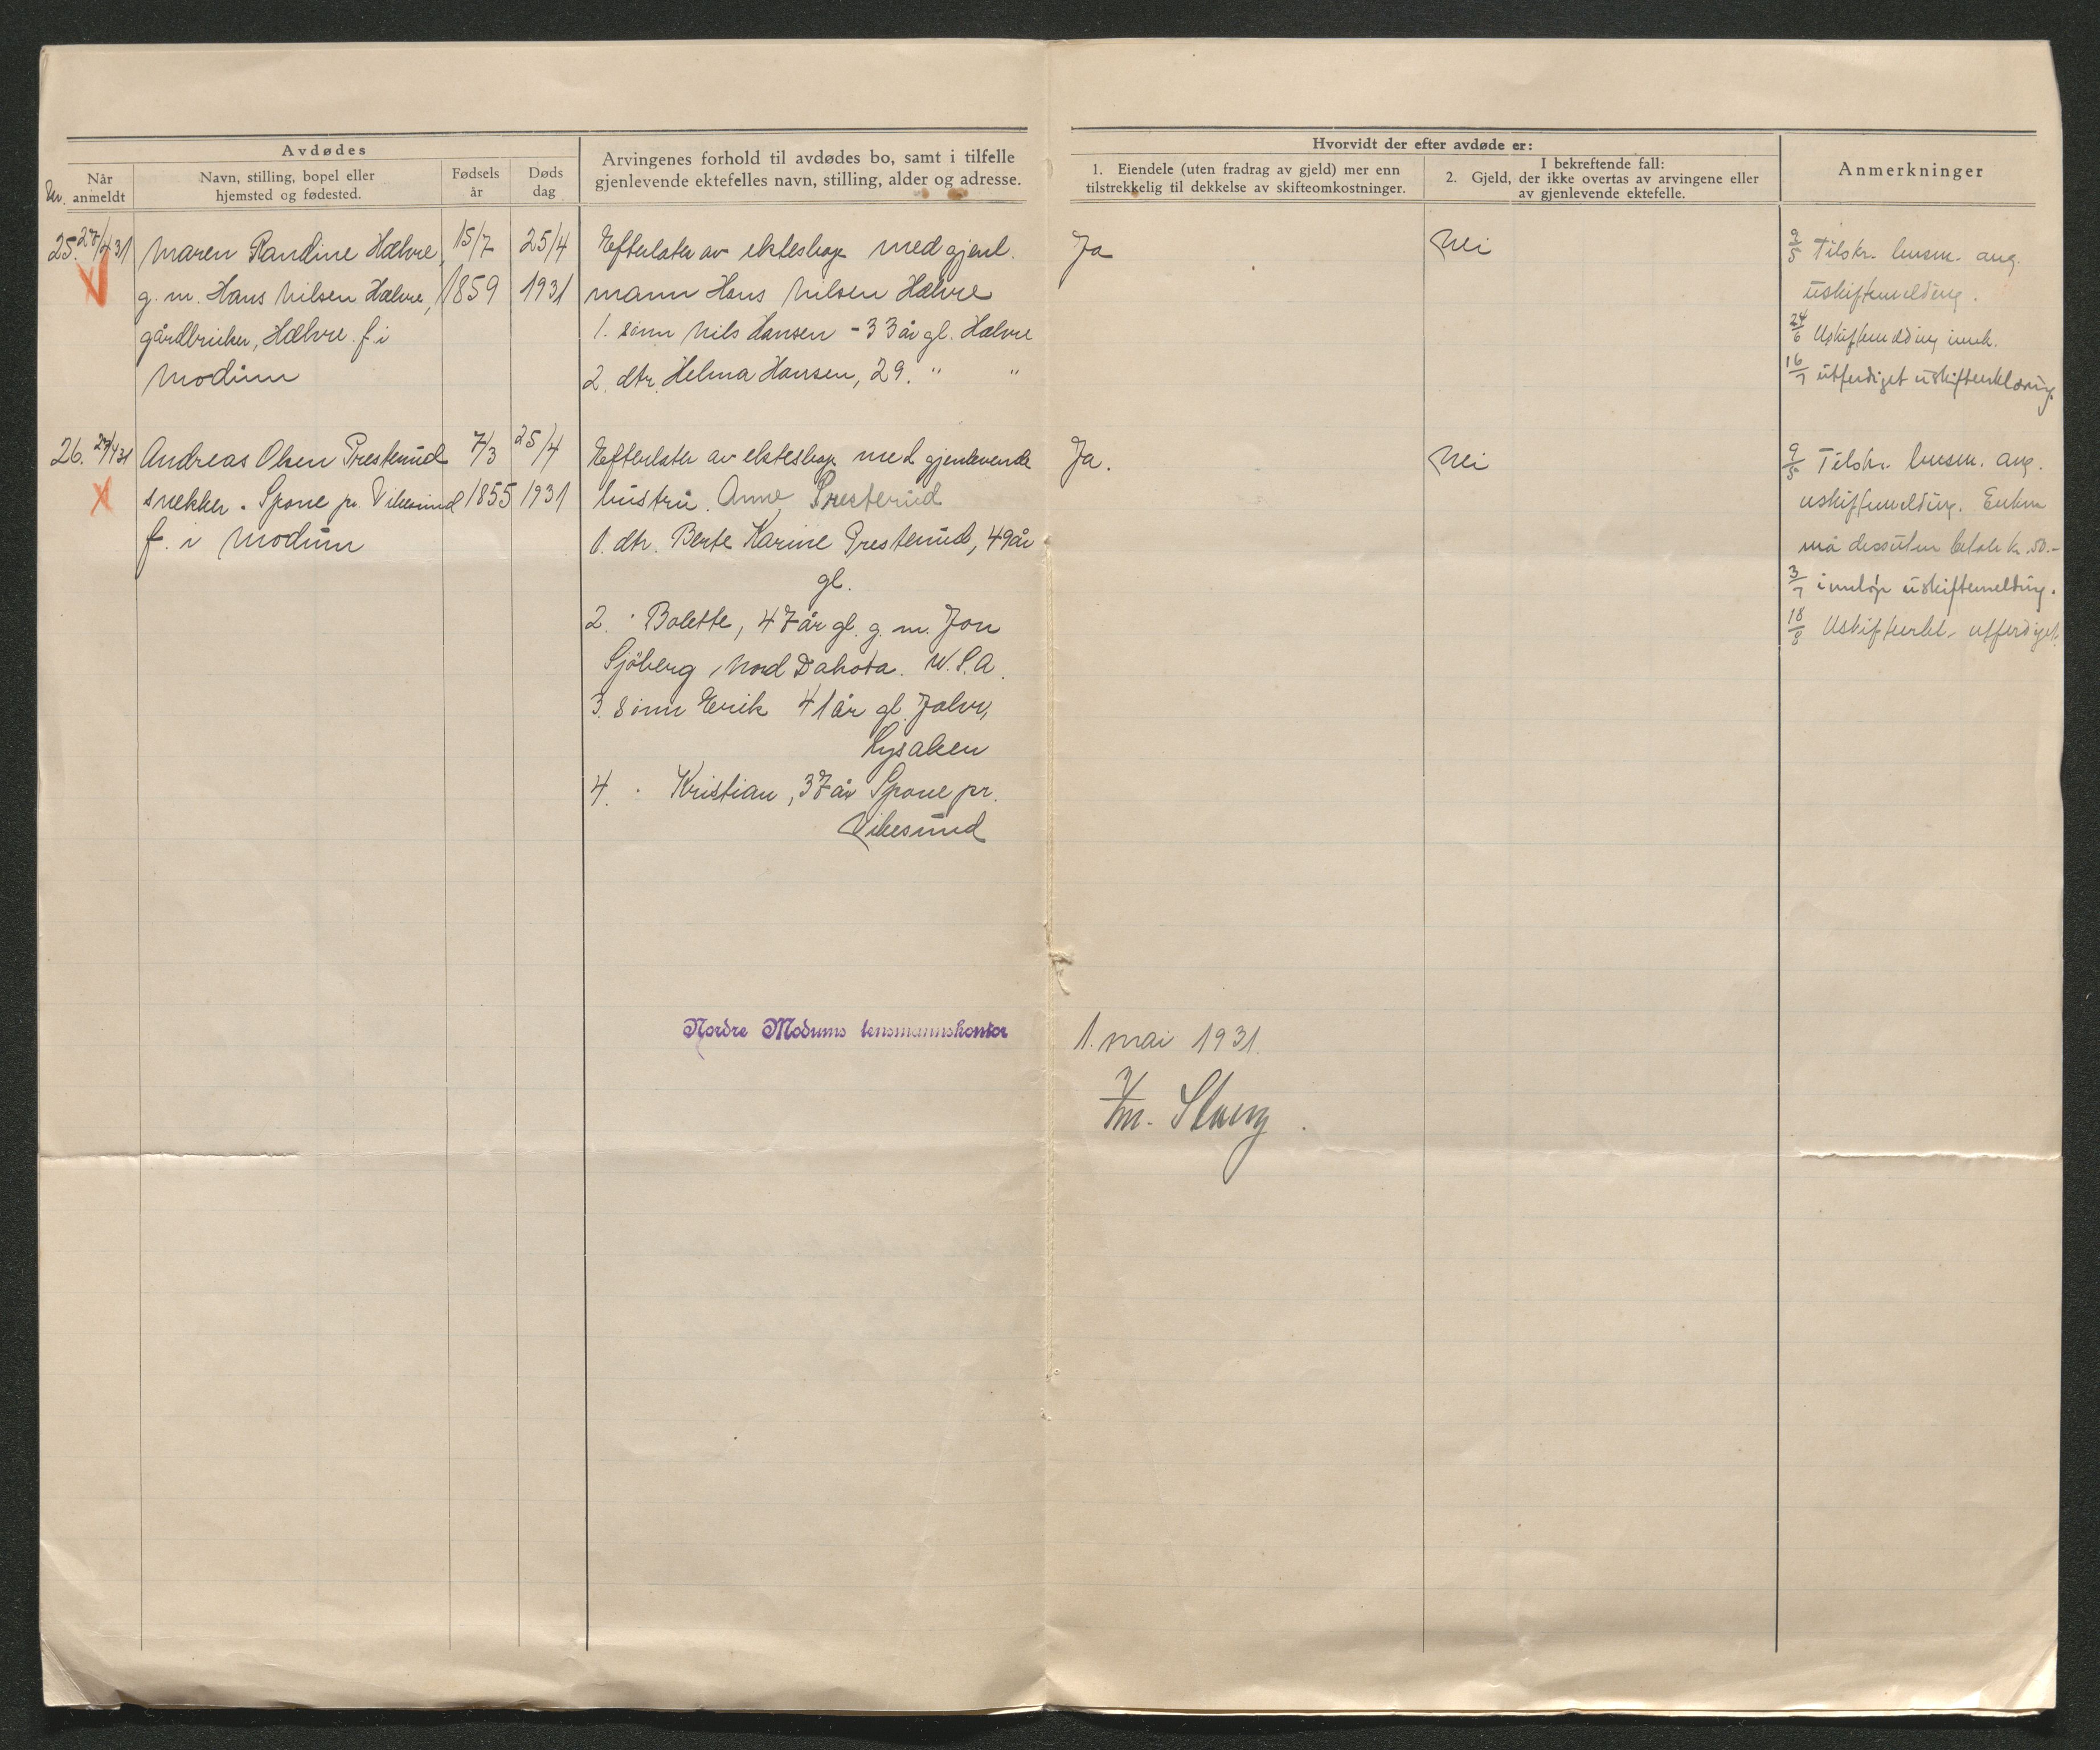 Avdødes
Nr. Når anmeldt
Navn, stilling, bopel eller
hjemsted og fødested.
Fødsels
år
Døds
dag
Arvingenes forhold til avdødes bo, samt i tilfelle
gjenlevende ektefelles navn, stilling, alder og adresse.
Hvorvidt der efter avdøde er:
1. Eiendele (uten fradrag av gjeld) mer enn
tilstrekkelig til dekkelse av skifteomkostninger.
I bekreftende fall:
2. Gjeld, der ikke overtas av arvingene eller
av gjenlevende ektefelle.
Anmerkninger
25. 27/4 31
Maren Randine Hælvre,
g. m. Hans Nilsen Hælvre,
gårdbruker, Hælvre. f. i
Modum
15/7
1859
25/4
1931
Efterlater av ekteskap med gjenl.
mann Hans Nilsen Hælvre
1. sønn Nils Hansen - 33 år gl. Hælvre
2. dtr. Helma Hansen, 29. " "
Ja
Nei
9/5 Tilskr. lensm. ang.
uskiftemelding.
24/6 Uskiftemelding innk.
16/7 utferdiget uskifteerklæring.
26. 27/4 31
Andreas Olsen Presterud
snekker. Spone pr. Vikesund
f. i Modum
7/3
1855
25/4
1931
Efterlater av ekteskap med gjenlevende
hustru. Anne Presterud
1. dtr. Berte Karine Presterud, 49 år
gl.
2. " Bolette, 47 år gl. g. m. Jon
Sjöberg, Nord Dakota. U.S.A.
3. sønn Erik 41 år gl. Jalvr,
Lysaken
4. " Kristian, 37 år Spone pr.
Vikesund
Ja.
Nei
9/5 Tilskr. lensm. ang.
uskiftemelding. Enken
må dessuten betale kr. 50.-
3/7 innløp uskiftemelding.
18/8 Uskifteerkl. utferdiget.
Nordre Modums lensmannskontor
1. mai 1931.